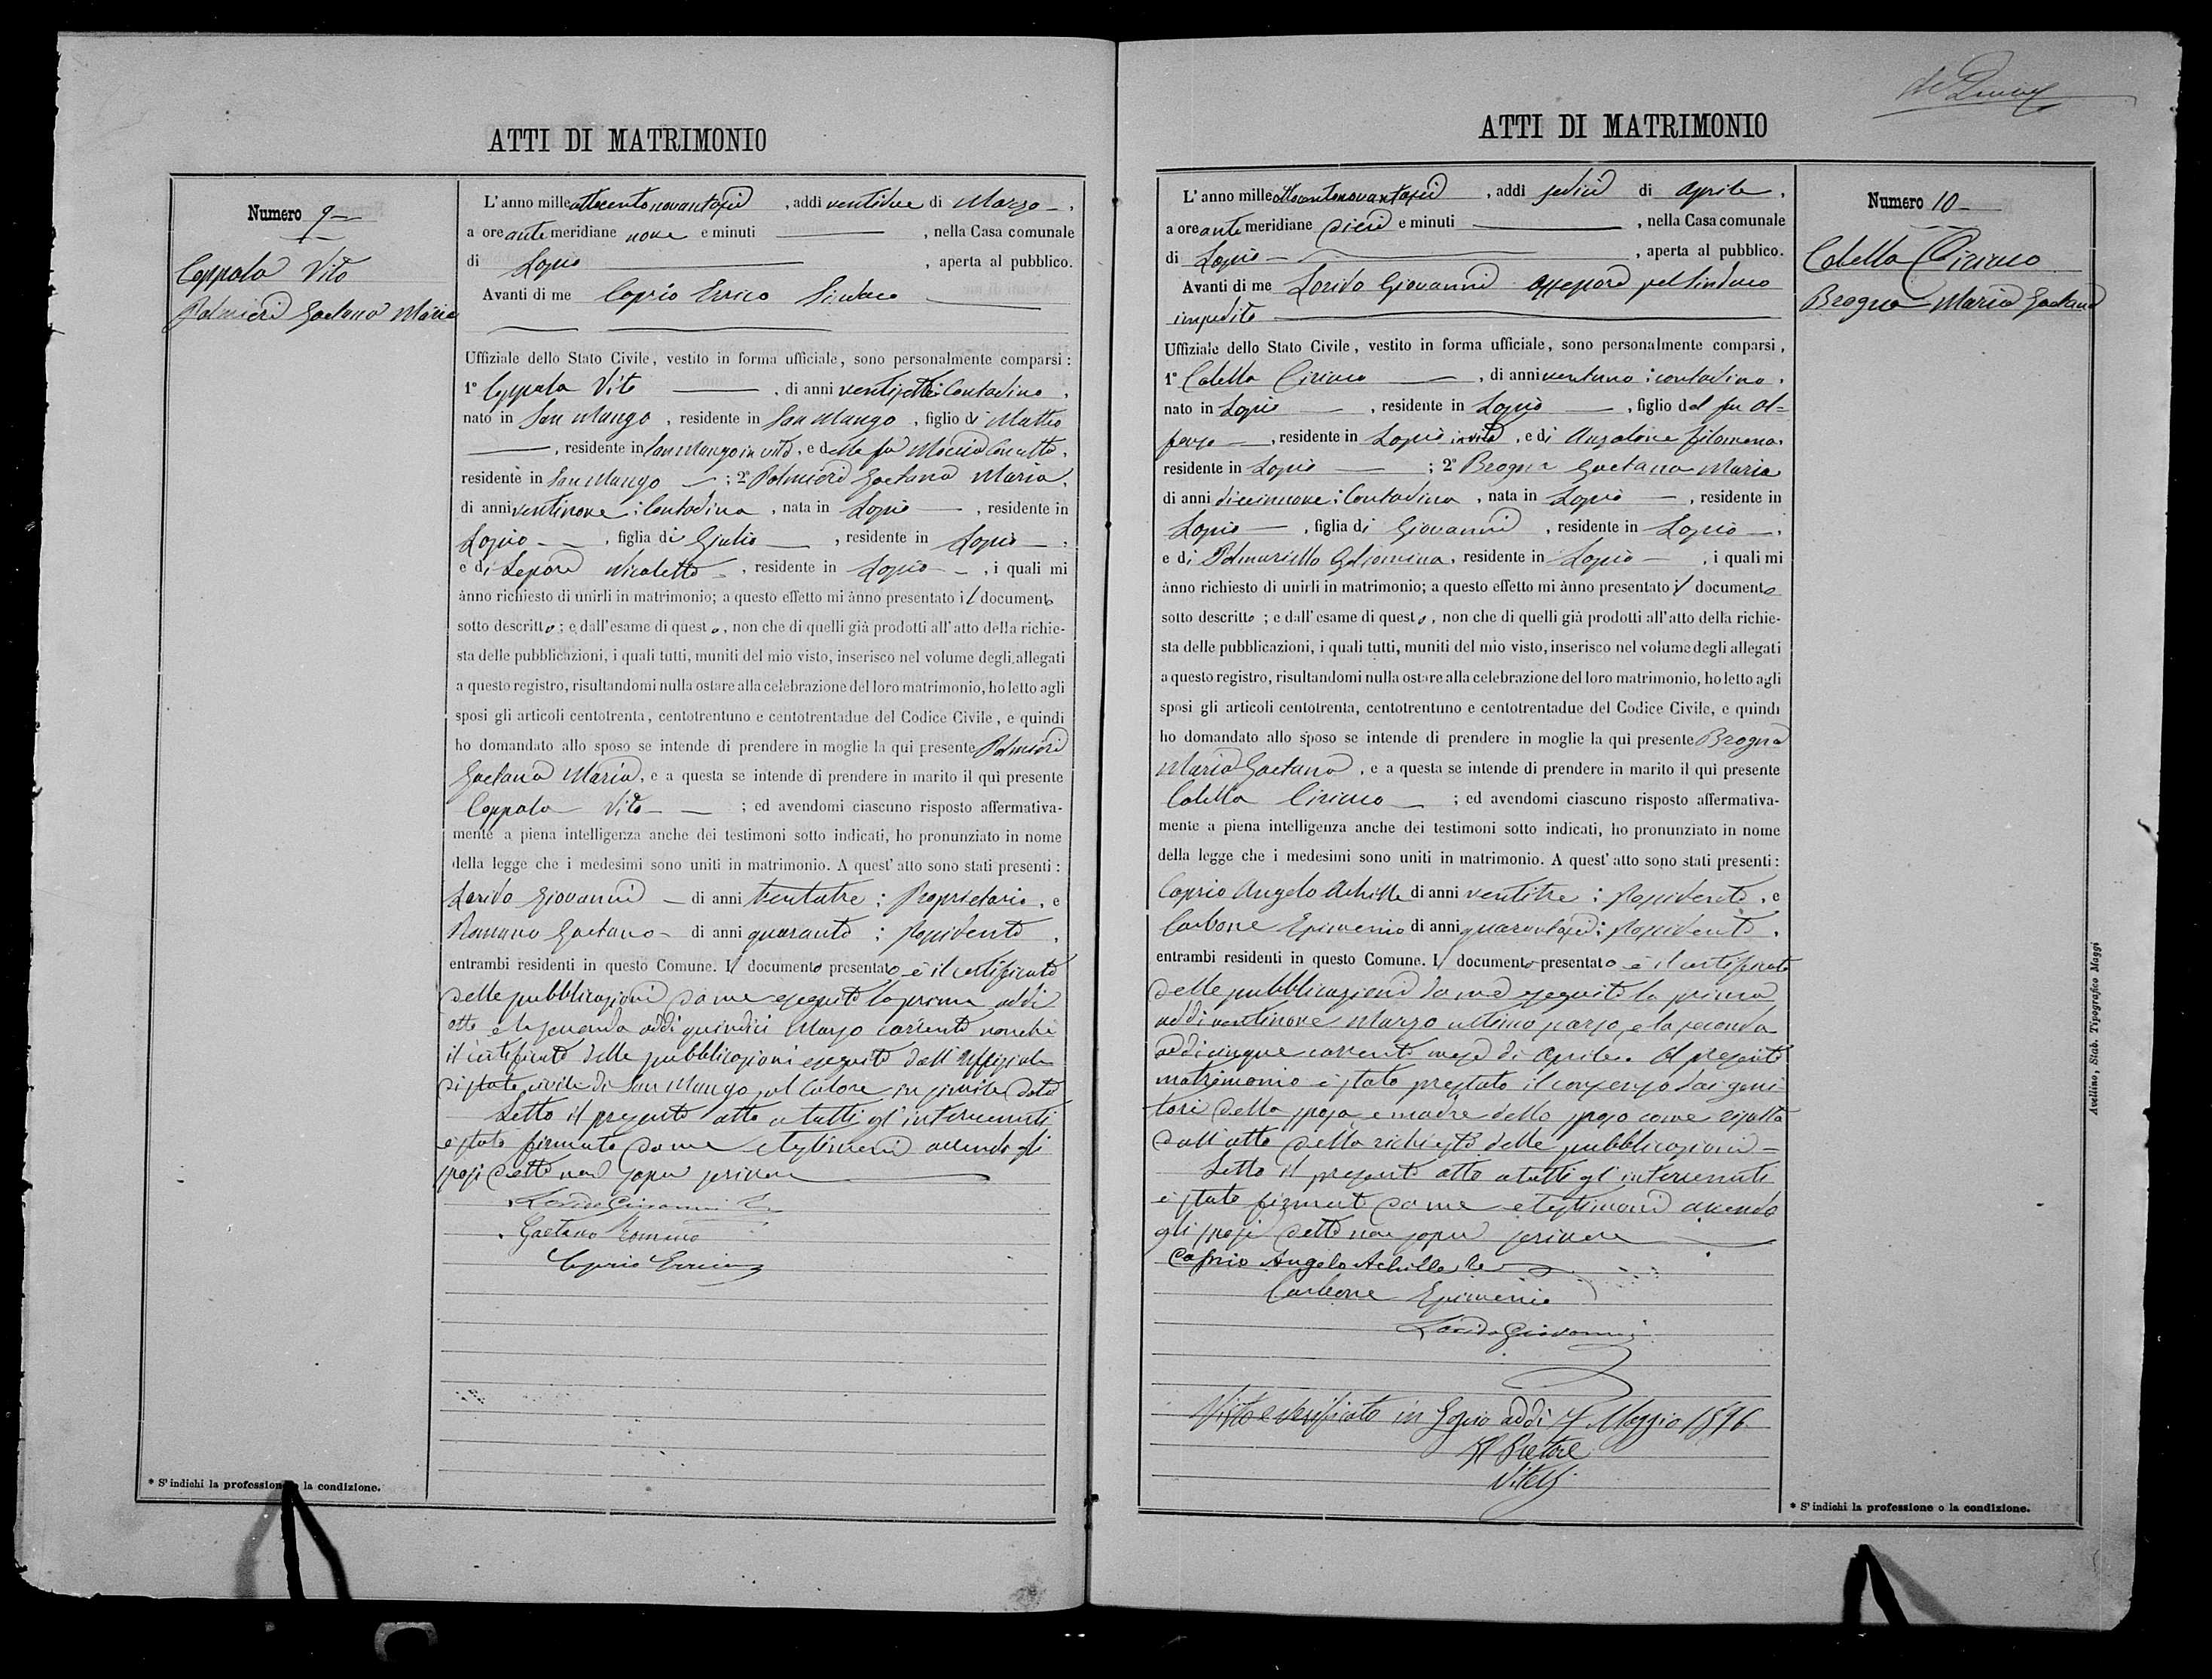 ATTI DI MATRIMONIO
Numero 9
Coppola Vito
Palmieri Gaetana Maria
L'anno mille ottocentonovantasei, addì ventidue di Marzo,
a ore ante meridiane nove e minuti , nella Casa comunale
di Lapio , aperta al pubblico.
Avanti di me Caprio Errico Sindaco
Uffiziale dello Stato Civile, vestito in forma ufficiale, sono personalmente comparsi:
1° Coppola Vito , di anni ventisette: Contadino,
nato in San Mango, residente in San Mango, figlio di Matteo
, residente in San Mango in vita, e della fu Moccia Concetta,
residente in San Mango; 2° Palmieri Gaetana Maria,
di anni ventinove: Contadina, nata in Lapio , residente in
Lapio , figlia di Giulio , residente in Lapio ,
e di Lepore Nicoletta , residente in Lapio , i quali mi
ànno richiesto di unirli in matrimonio; a questo effetto mi ànno presentato il documento
sotto descritto; e dall'esame di questo, non che di quelli già prodotti all'atto della richie-
sta delle pubblicazioni, i quali tutti, muniti del mio visto, inserisco nel volume degli allegati
a questo registro, risultandomi nulla ostare alla celebrazione del loro matrimonio, ho letto agli
sposi gli articoli centotrenta, centotrentuno e centotrentadue del Codice Civile, e quindi
ho domandato allo sposo se intende di prendere in moglie la qui presente Palmieri
Gaetana Maria, e a questa se intende di prendere in marito il qui presente
Coppola Vito ; ed avendomi ciascuno risposto affermativa-
mente a piena intelligenza anche dei testimoni sotto indicati, ho pronunziato in nome
della legge che i medesimi sono uniti in matrimonio. A quest'atto sono stati presenti:
Lorido Giovanni di anni trentatre: Proprietario, e
Romano Gaetano di anni quaranta: Possidente,
entrambi residenti in questo Comune. Il documento presentato è il certificato
delle pubblicazioni da me eseguite la prima addì
otto e la seconda addì quindici Marzo corrente nonchè
il certificato delle pubblicazioni eseguite dall'Uffiziale
di stato civile di San Mango sul Calore in simile data
Letto il presente atto a tutti gl'intervenuti
è stato firmato da me e testimoni avendo gli
sposi detto non saper scrivere
Lorido Giovanni
Gaetano Romano
Caprio Errico
* S'indichi la professione o la condizione.
ATTI DI MATRIMONIO
Numero 10
Colella Ciriaco
Brogna Maria Gaetana
L'anno mille ottocentonovantasei, addì sedici di Aprile,
a ore ante meridiane dieci e minuti , nella Casa comunale
di Lapio , aperta al pubblico.
Avanti di me Lorido Giovanni Assessore pel Sindaco
impedito
Uffiziale dello Stato Civile, vestito in forma ufficiale, sono personalmente comparsi,
1° Colella Ciriaco , di anni ventuno: contadino,
nato in Lapio , residente in Lapio , figlio del fu Al=
fonso , residente in Lapio in vita, e di Anzalone Filomena,
residente in Lapio ; 2° Brogna Gaetana Maria
di anni diciannove: Contadina, nata in Lapio , residente in
Lapio , figlia di Giovanni , residente in Lapio ,
e di Palmariello Gelsomina, residente in Lapio , i quali mi
ànno richiesto di unirli in matrimonio; a questo effetto mi ànno presentato il documento
sotto descritto; e dall'esame di questo, non che di quelli già prodotti all'atto della richie-
sta delle pubblicazioni, i quali tutti, muniti del mio visto, inserisco nel volume degli allegati
a questo registro, risultandomi nulla ostare alla celebrazione del loro matrimonio, ho letto agli
sposi gli articoli centotrenta, centotrentuno e centotrentadue del Codice Civile, e quindi
ho domandato allo sposo se intende di prendere in moglie la qui presente Brogna
Maria Gaetana, e a questa se intende di prendere in marito il qui presente
Colella Ciriaco ; ed avendomi ciascuno risposto affermativa-
mente a piena intelligenza anche dei testimoni sotto indicati, ho pronunziato in nome
della legge che i medesimi sono uniti in matrimonio. A quest'atto sono stati presenti:
Caprio Angelo Achille di anni ventitre: Possidente, e
Carbone Epimenio di anni quarantasei: Possidente,
entrambi residenti in questo Comune. Il documento presentato è il certificato
delle pubblicazioni da me eseguite la prima
addì ventinove Marzo ultimo scorso, e la seconda
addì cinque corrente mese di Aprile. Al presente
matrimonio è stato prestato il consenso dai geni-
tori della sposa e madre dello sposo come risulta
dall'atto della richiesta delle pubblicazioni=
Letto il presente atto a tutti gl'intervenuti
è stato firmato da me e testimoni avendo
gli sposi detto non saper scrivere
Caprio Angelo Achille
Carbone Epimenio
Lorido Giovanni
Visto e verificato in Lapio addì 7 Maggio 1896
Il Pretore
* S'indichi la professione o la condizione.
Avellino, Stab. Tipografico Maggi